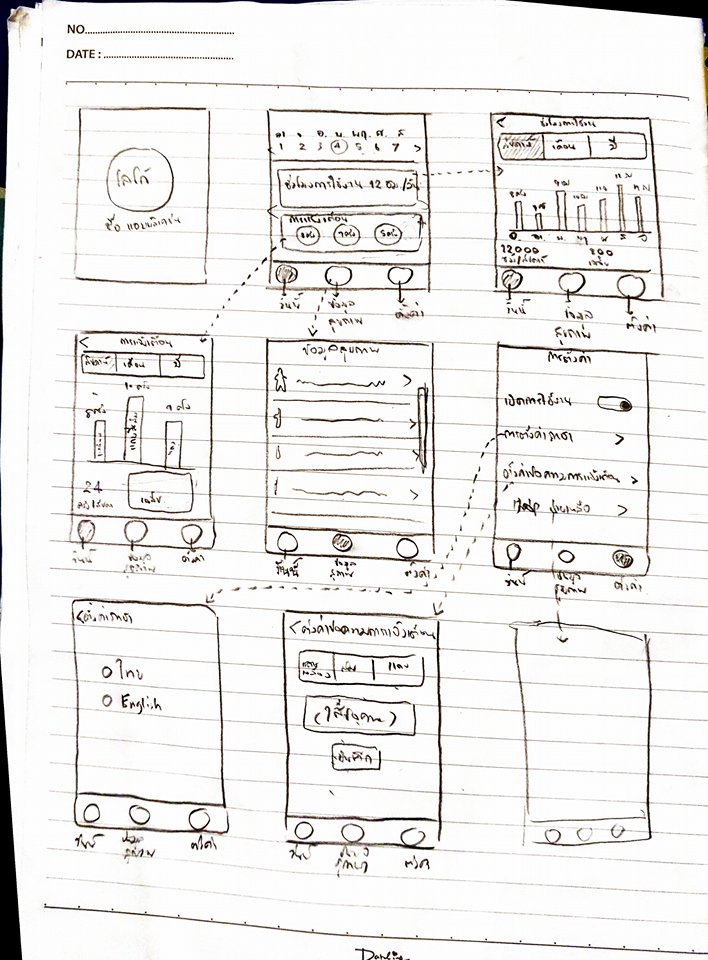 NO.
DATE :
โลโก้
ชื่อ แอปพลิเคชัน
อา จ อ. พ. พฤ. ศ. ส
1 2 3 4 5 6 7
ชั่วโมงการใช้งาน 12 ชม./วัน
การแจ้งเตือน
วันนี้ ข้อมูลสุขภาพ ตั้งค่า
< ชั่วโมงการใช้งาน
สัปดาห์ เดือน ปี
12000
800
เฉลี่ย
วันนี้ ข้อมูลสุขภาพ ตั้งค่า
< การแจ้งเตือน
สัปดาห์ เดือน ปี
24
เฉลี่ย
วันนี้ ข้อมูลสุขภาพ ตั้งค่า
ข้อมูลสุขภาพ
วันนี้ ข้อมูลสุขภาพ ตั้งค่า
การตั้งค่า
เปิดการใช้งาน
การตั้งค่าภาษา >
ตั้งค่าข้อความการแจ้งเตือน >
ช่วยเหลือ >
วันนี้ ข้อมูลสุขภาพ ตั้งค่า
< ตั้งค่าภาษา
ไทย
English
วันนี้ ข้อมูลสุขภาพ ตั้งค่า
< ตั้งค่าข้อความการแจ้งเตือน
(ใส่ข้อความ)
บันทึก
วันนี้ ข้อมูลสุขภาพ ตั้งค่า